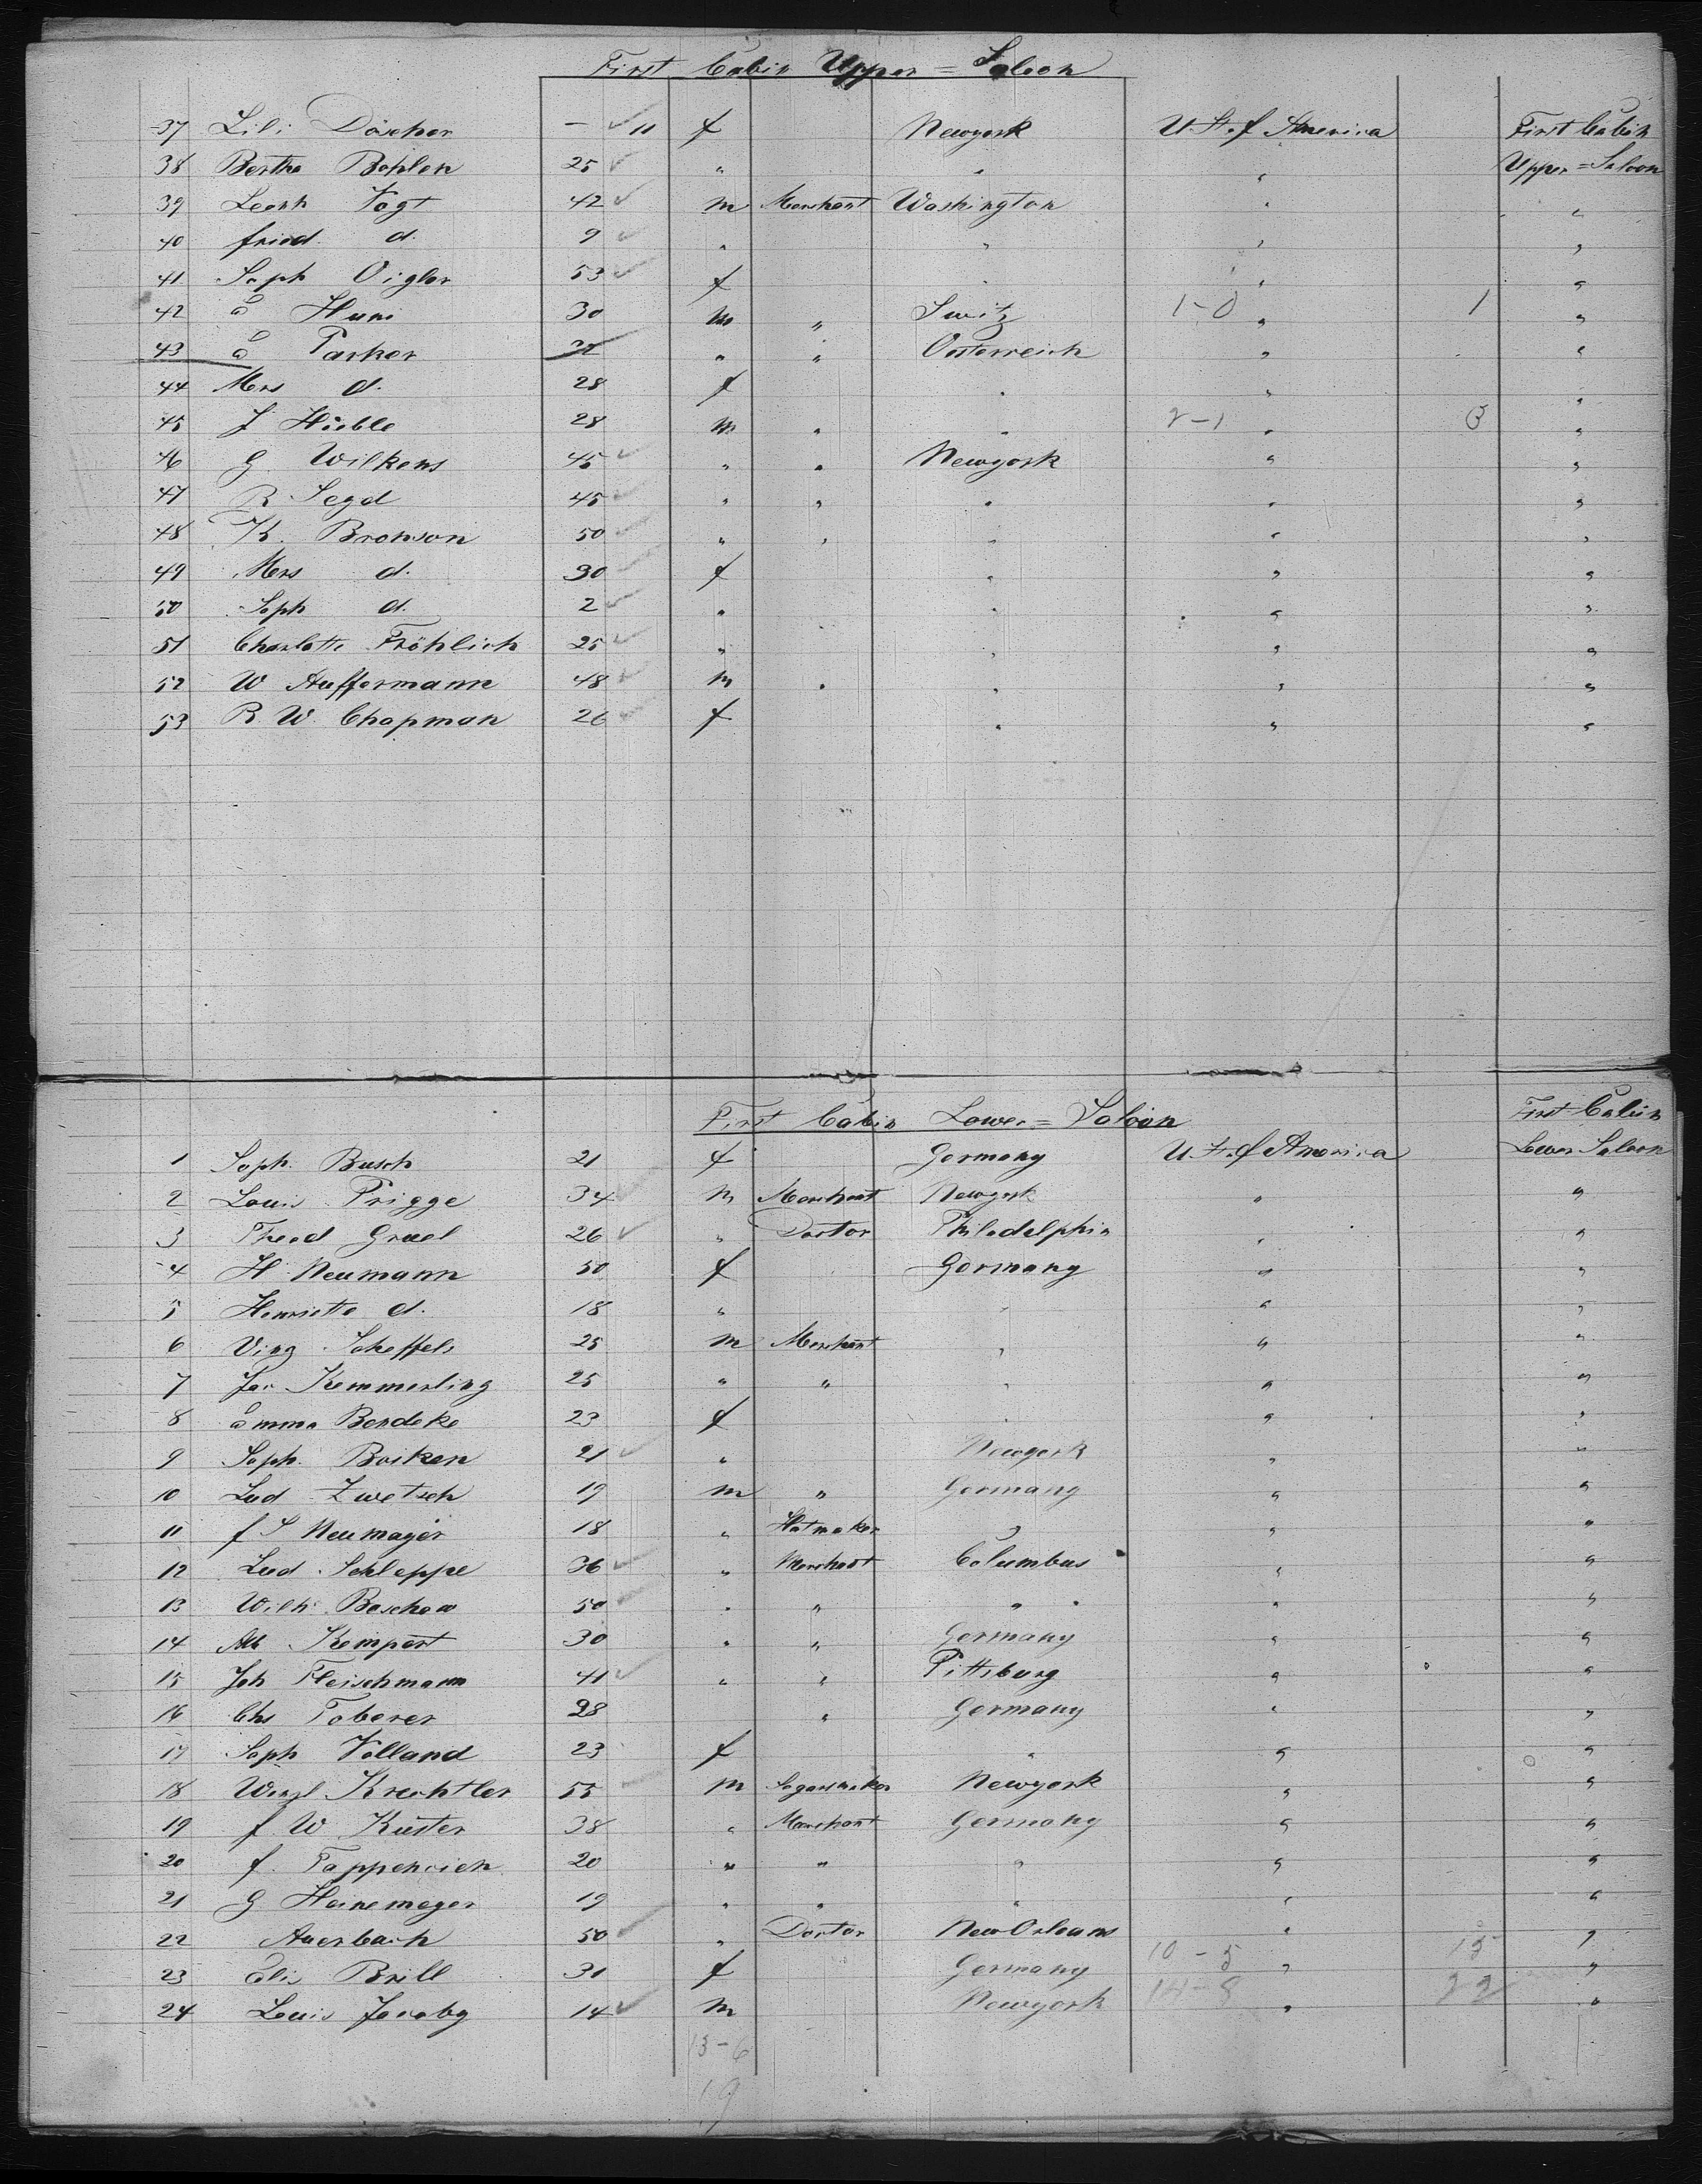 First Cabin Upper = Saloon
37 Lili Döscher - 11 f Newyork U. St. of America First Cabin
38 Bertha Bohlen 25 " " " Upper = Saloon
39 Leonh Vogt 42 m Merchant Washington " "
40 fried. d. 9 " " " "
41 Soph Vigler 53 f " " "
42 E Huni 30 m " Switz 1-0 " 1 "
43 E Parker 32 " " Oesterreich " "
44 Mrs d. 28 f " " "
45 J Hieble 28 m " " 2-1 " 3 "
46 G Wilkens 45 " " Newyork " "
47 R. Segd 45 " " " " "
48 K. Bronson 50 " " " " "
49 Mrs d. 30 f " " "
50 Soph d. 2 " " " "
51 Charlotte Fröhlich 25 " " " "
52 W Auffermann 48 m " " " "
53 R. W. Chapman 26 f " " "
First Cabin Lower = Saloon First Cabin
1 Soph. Busch 21 f Germany U. St. of America Lower Saloon
2 Louis Prigge 34 m Merchant Newyork " "
3 Theod Grael 26 " Doctor Philadelphia " "
4 H. Neumann 50 f Germany " "
5 Henriette d. 18 " " " "
6 Ving Scheffels 25 m Merchant " " "
7 Jac Kemmerling 25 " " " " "
8 Emma Bendeke 23 f " " "
9 Soph. Boiken 21 " Newyork " "
10 Lud Zwetsch 19 m " Germany " "
11 f S Neumayer 18 " Hatmaker " " "
12 Lud. Schleppe 36 " Merchant Columbus " "
13 Wilh. Beschow 50 " " " " "
14 Alb Kempert 30 " " Germany " "
15 Joh Fleischmann 41 " " Pittsburg " "
16 Chs Toberer 28 " Germany " "
17 Soph Volland 23 f " " "
18 Wenzl Krechtler 55 m Segarsmaker Newyork " "
19 f. W. Küster 38 " Merchant Germany " "
20 f. Tappenrien 20 " " " " "
21 G Heinemeyer 19 " " " " "
22 Auerbach 50 " Doctor New Orleans " "
23 Elis Brill 31 f Germany 10-5 " 15 "
24 Louis Jacoby 14 m Newyork 14-8 " 22 "
13-6
19